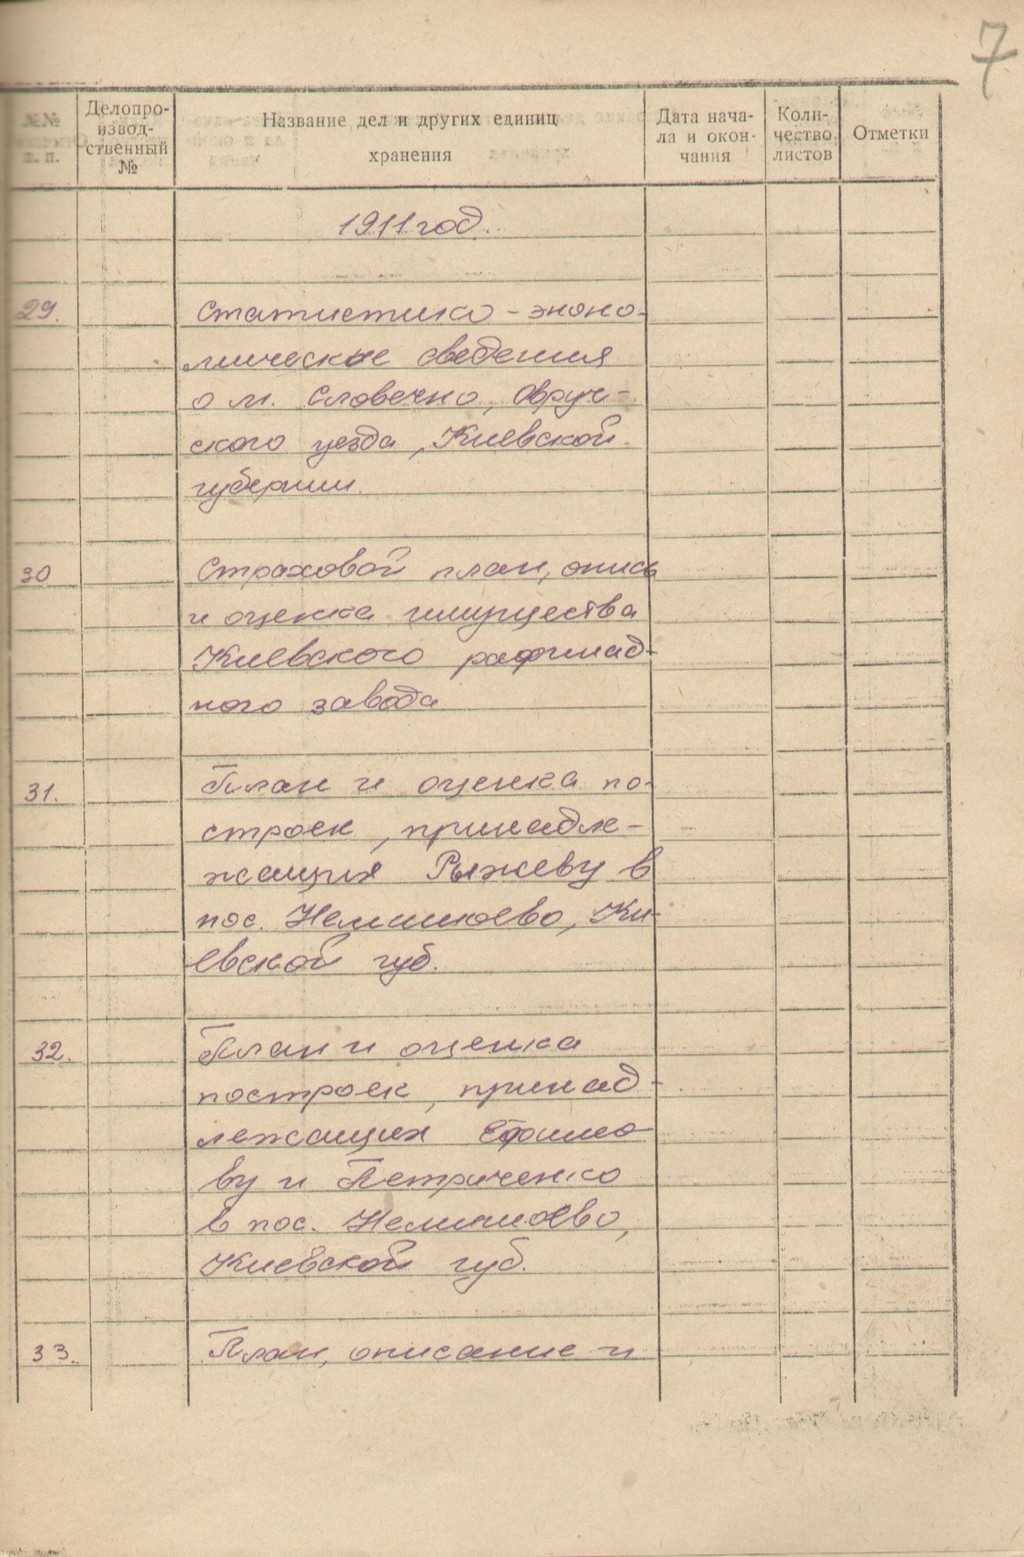 7
№№ п. п.
Делопро-
извод-
ственный
№
Название дел и других единиц
хранения
Дата нача-
ла и окон-
чания
Коли-
чество
листов
Отметки
1911 год.
29. Статистико-эконо-
мические сведения
о м. Словечно, Овруч-
ского уезда, Киевской
губернии.
30 Страховой план, опись
и оценка имущества
Киевского рафинад-
ного завода
31. План и оценка по-
строек, принадле-
жащих Рыжеву в
пос. Немишаево, Ки-
евской губ.
32. План и оценка
построек, принад-
лежащих Ефимо-
ву и Петриченко
в пос. Немишаево,
Киевской губ.
33. План, описание и